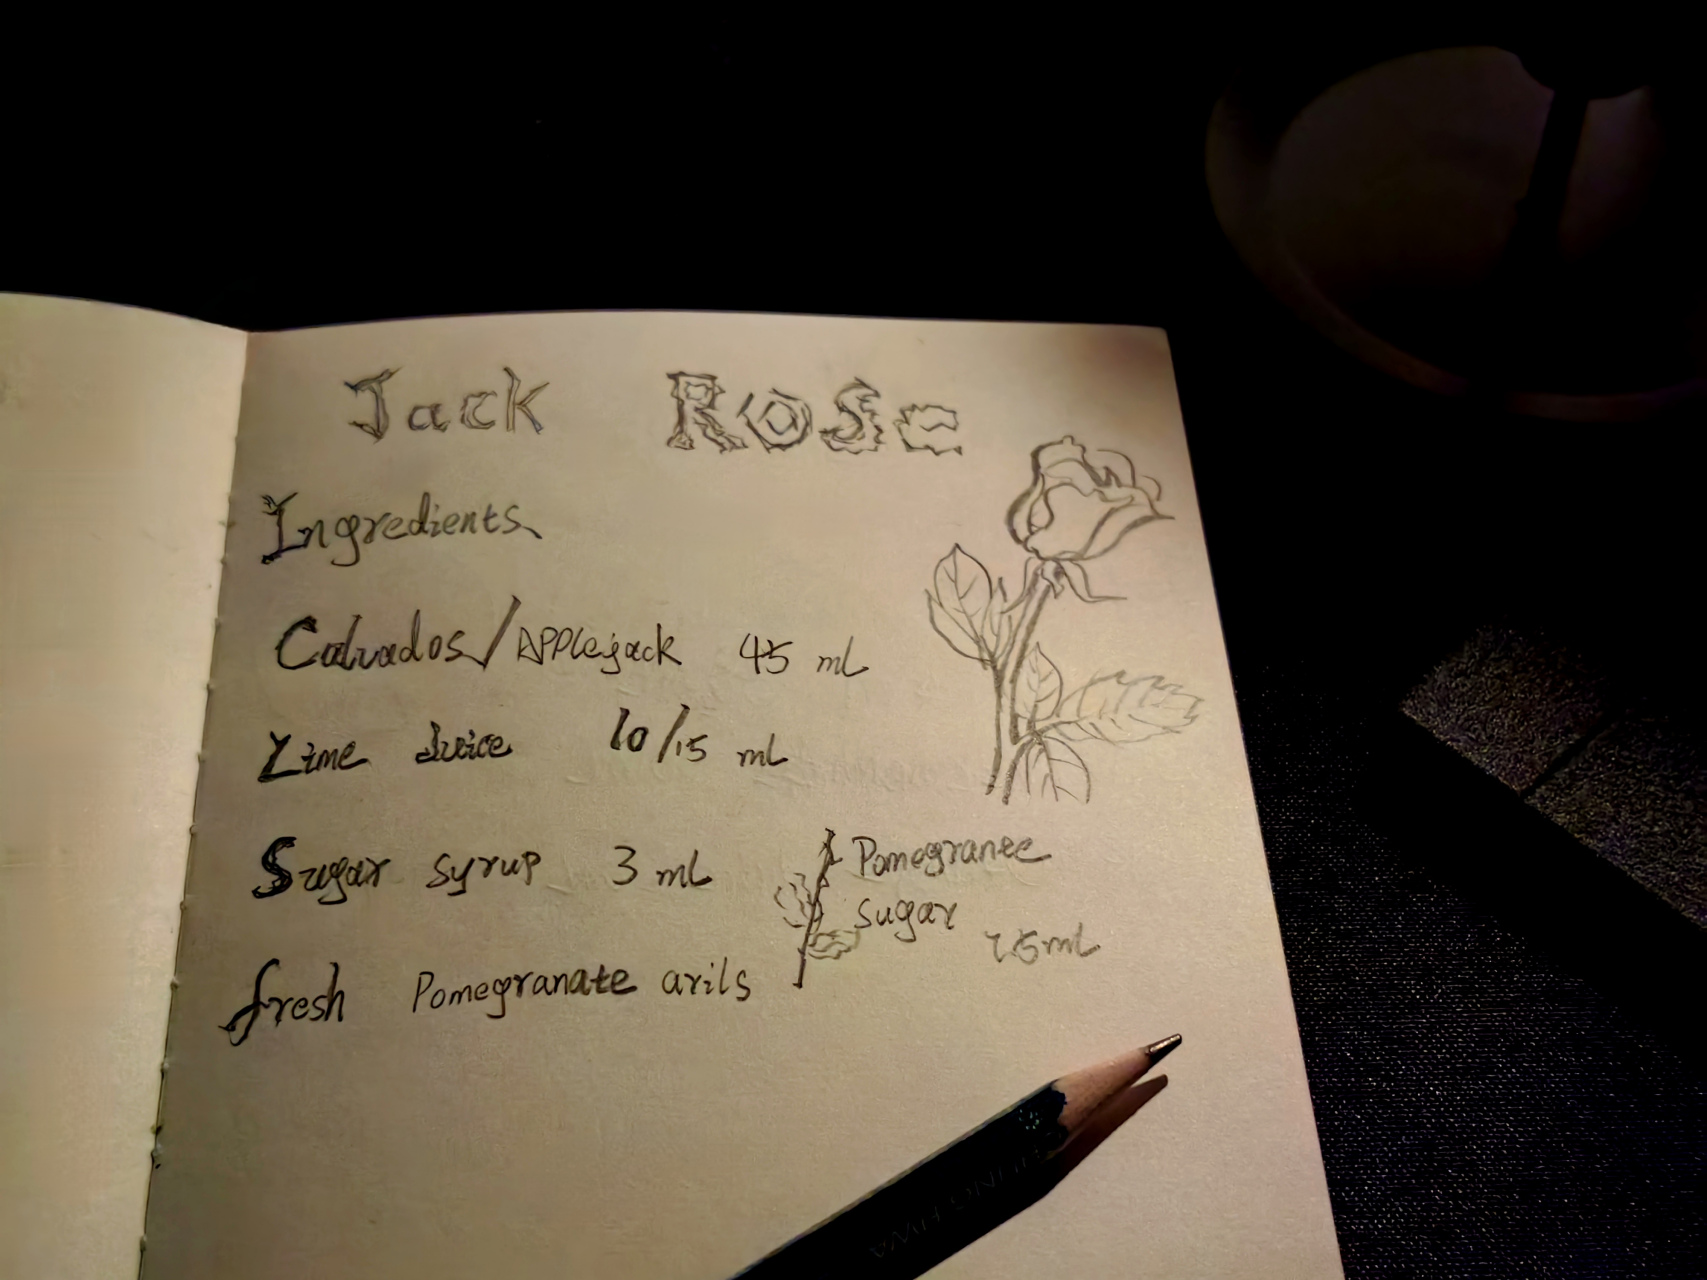 Jack Rose
Ingredients
Calvados/Applejack 45 ml
Lime Juice 10/15 ml
Sugar syrup 3 ml
Pomegranee
sugar
15ml
fresh Pomegranate arils